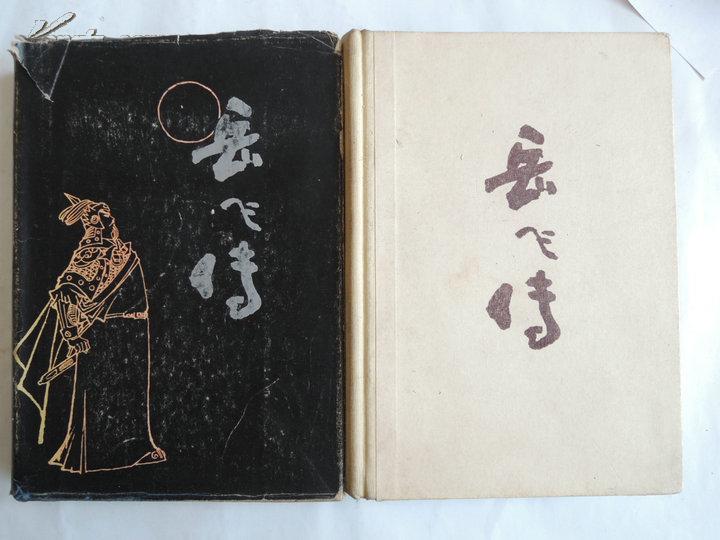 岳飞传
岳飞传